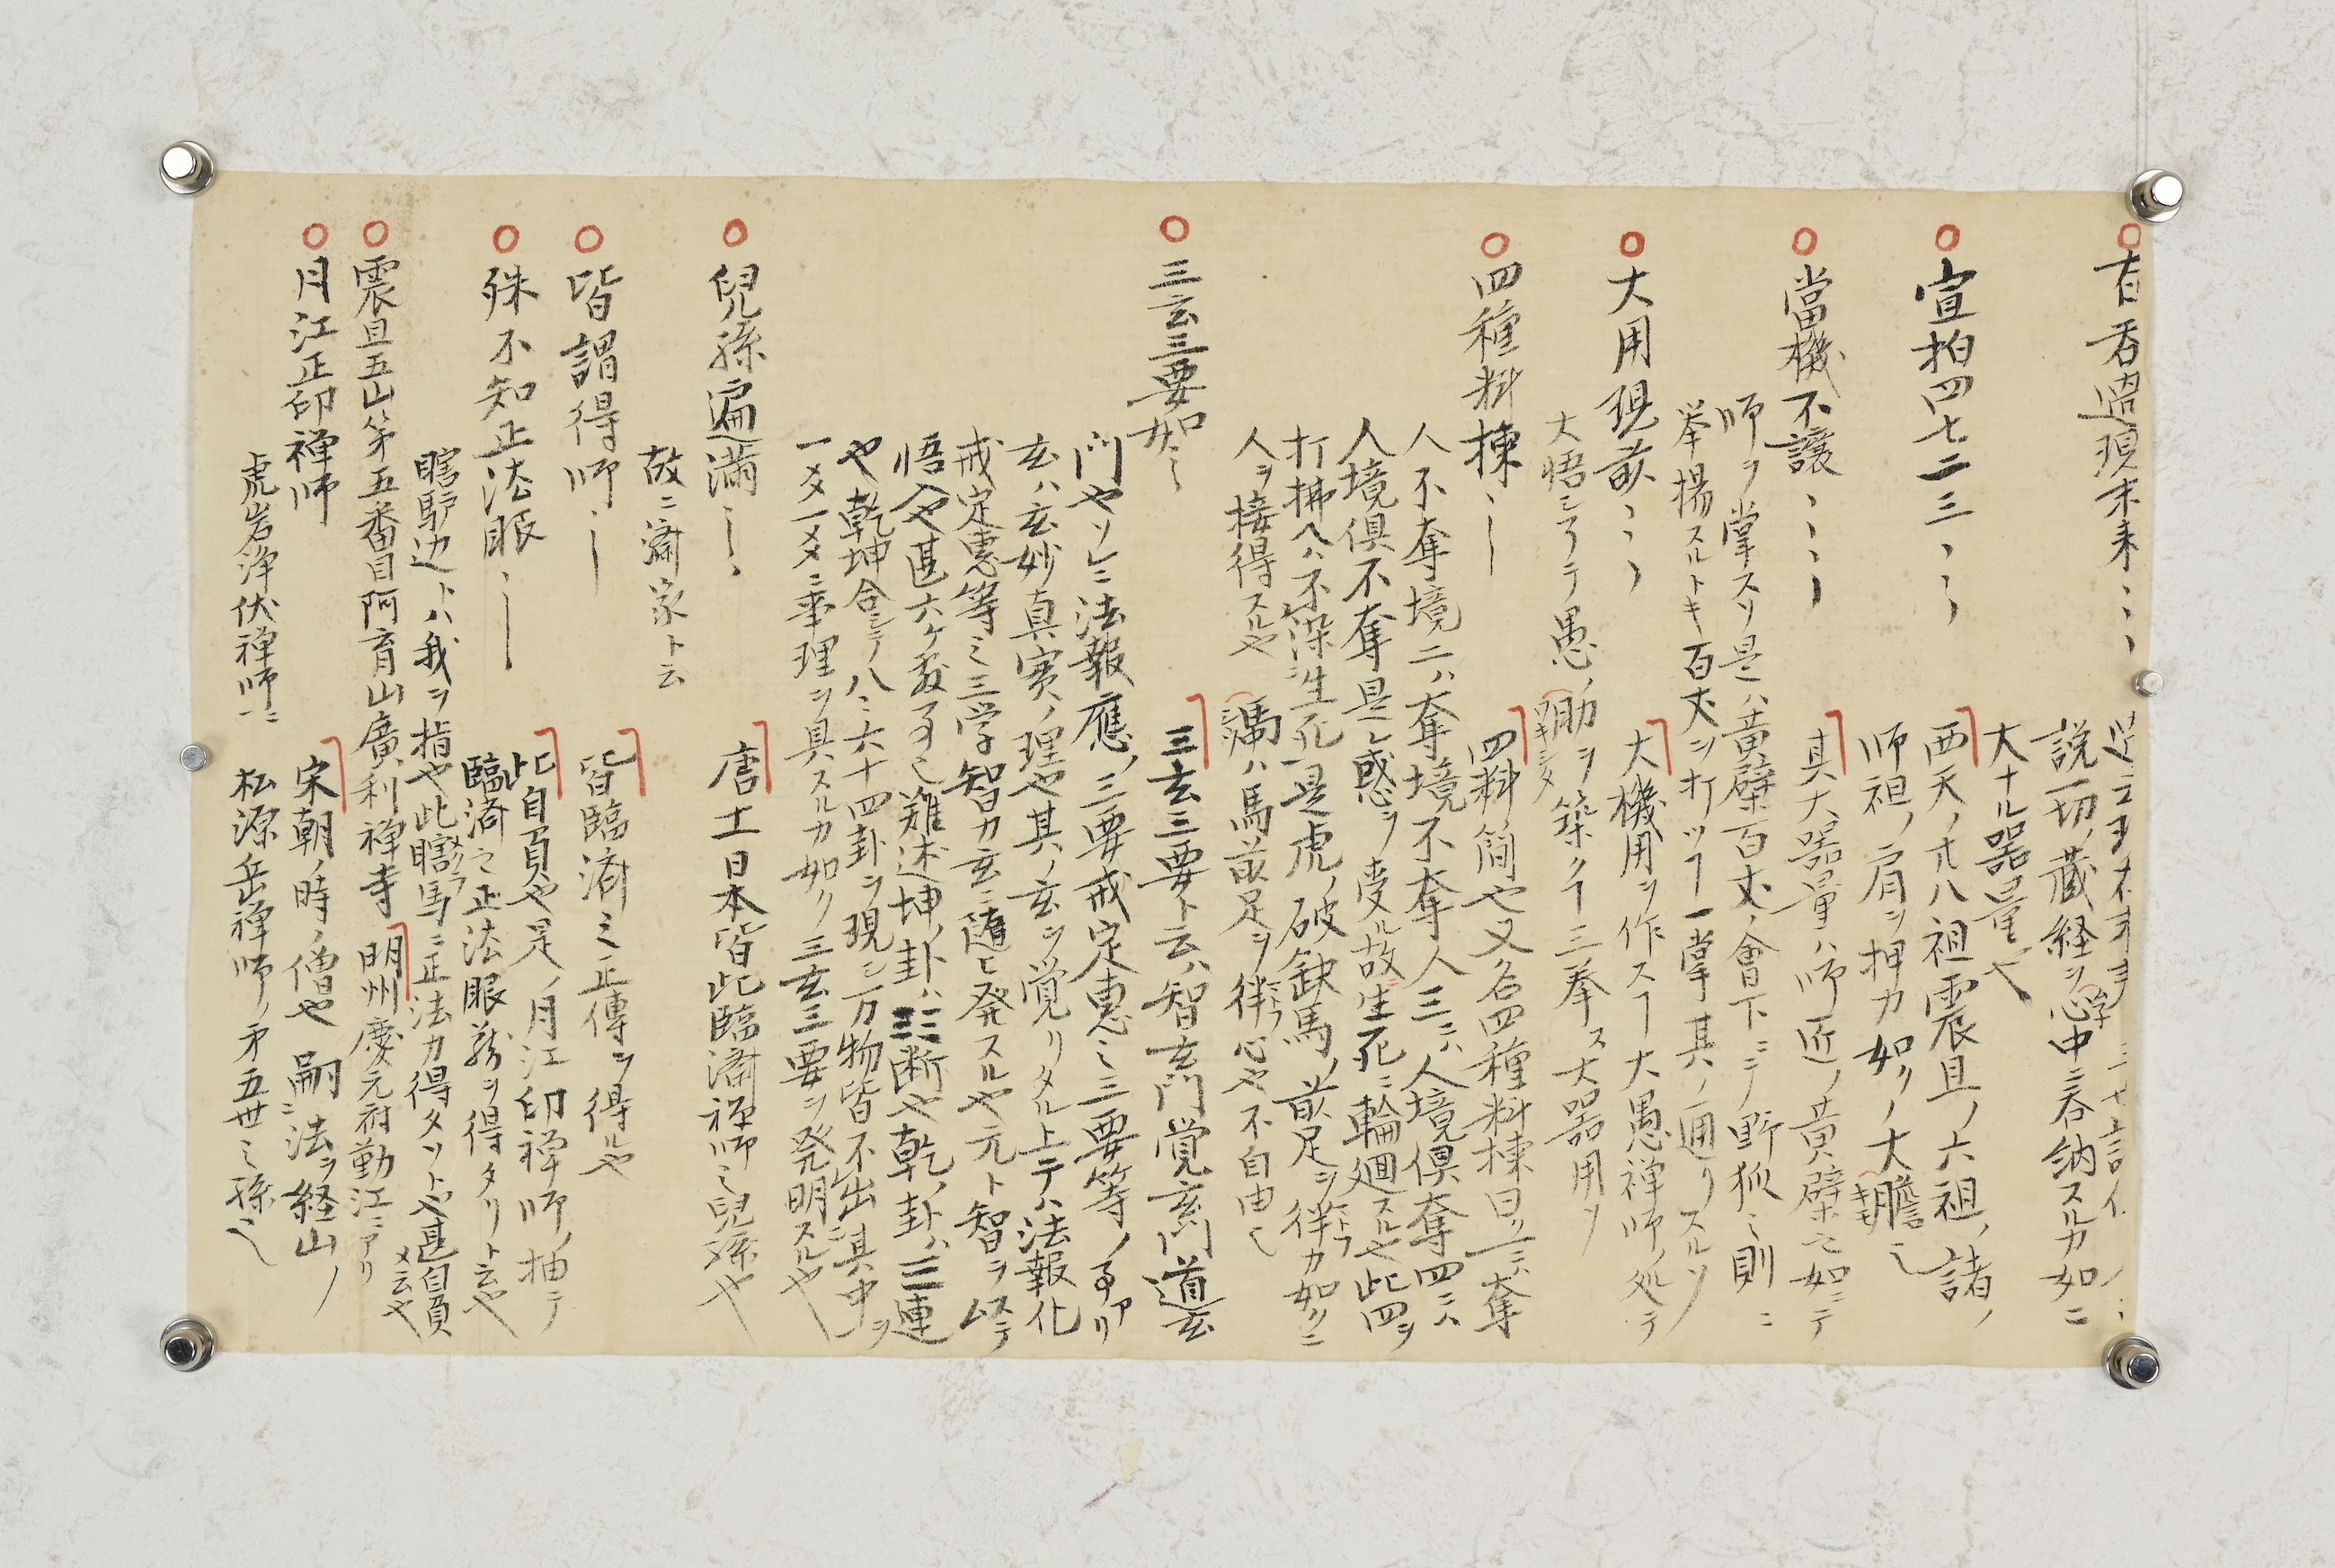 呑過現未来、、、
説一切ノ蔵経ヲ心中ニ呑納スルカ如ニ
大ナル器量や
宣拍四七二三、、、
西天ノ廿八祖震旦ノ六祖ノ諸ノ
師祖ノ肩ヲ押カ如リノ大膽
當機不譲、、、
其大器量ハ師匠ノ黄檗
師ヲ掌スリ是ハ黄檗百丈ノ會下ニテ野狐ミ則ニ
挙揚スルトキ百丈ヲ打ツ一掌其ノ通リスルソ
大用現前、、、
大機用ヲ作ス大愚禅師ノ処テ
大悟シテ愚ノ肋ヲ築ク三拳ス大器用ソ
四種料揀、、
四料簡や又ハ名四種料揀曰一ニハ奪
人不奪境二ハ奪境不奪人三ニハ人境倶奪四ニハ
人境倶不奪是ミ惑ヲ受ル故生死ニ輪廻スルや此四ヲ
打拂ヘハ不染生死是虎ノ破缺馬ノ前足ヲ絆カ如クニ
人ヲ接得スルや ハ馬前足ヲ絆心や不自由
三玄三要如ミ
三玄三要ト云ハ智玄門覚玄門道玄
門やソレニ法報應ノ三要戒定惠ミ三要等ノ アリ
玄ハ玄妙真実ノ理や其ノ玄ヲ覚リタル上テハ法報化
戒定惠等ミ三学智カ玄ニ随ヒ発スルや元ト智ヲ以テ
悟入や甚六ケ敷 難述坤ノ卦ハ☷断や乾ノ卦ハ三連
や乾坤合シテ八ミ六十四卦ヲ現シ万物皆不出其中ヲ
一メ一メニ事理ヲ具スルカ如ク三玄三要ヲ発明スルや
兒孫遍満、、
唐土日本皆此臨濟禅師ミ兒孫や
故ニ濟家ト云
皆謂得師、
皆臨濟ミ正傳ヲ得ルや
殊不知正法眼、
此自負や是ノ月江印禅師ノ抽テ
臨済之正法眼 ヲ得タリト云や
瞎驢辺トハ我ヲ指や此瞎馬ニ正法カ得タソトや甚自負
メ云や
震旦五山第五番目阿育山廣利禅寺 明州慶元府勤江ニアリ
月江正印禅師
宋朝ノ時ノ僧や 嗣ニ法ヲ経山ノ
虎岩浄伏禅師ニ 松源岳禅師ノ第五世ミ孫